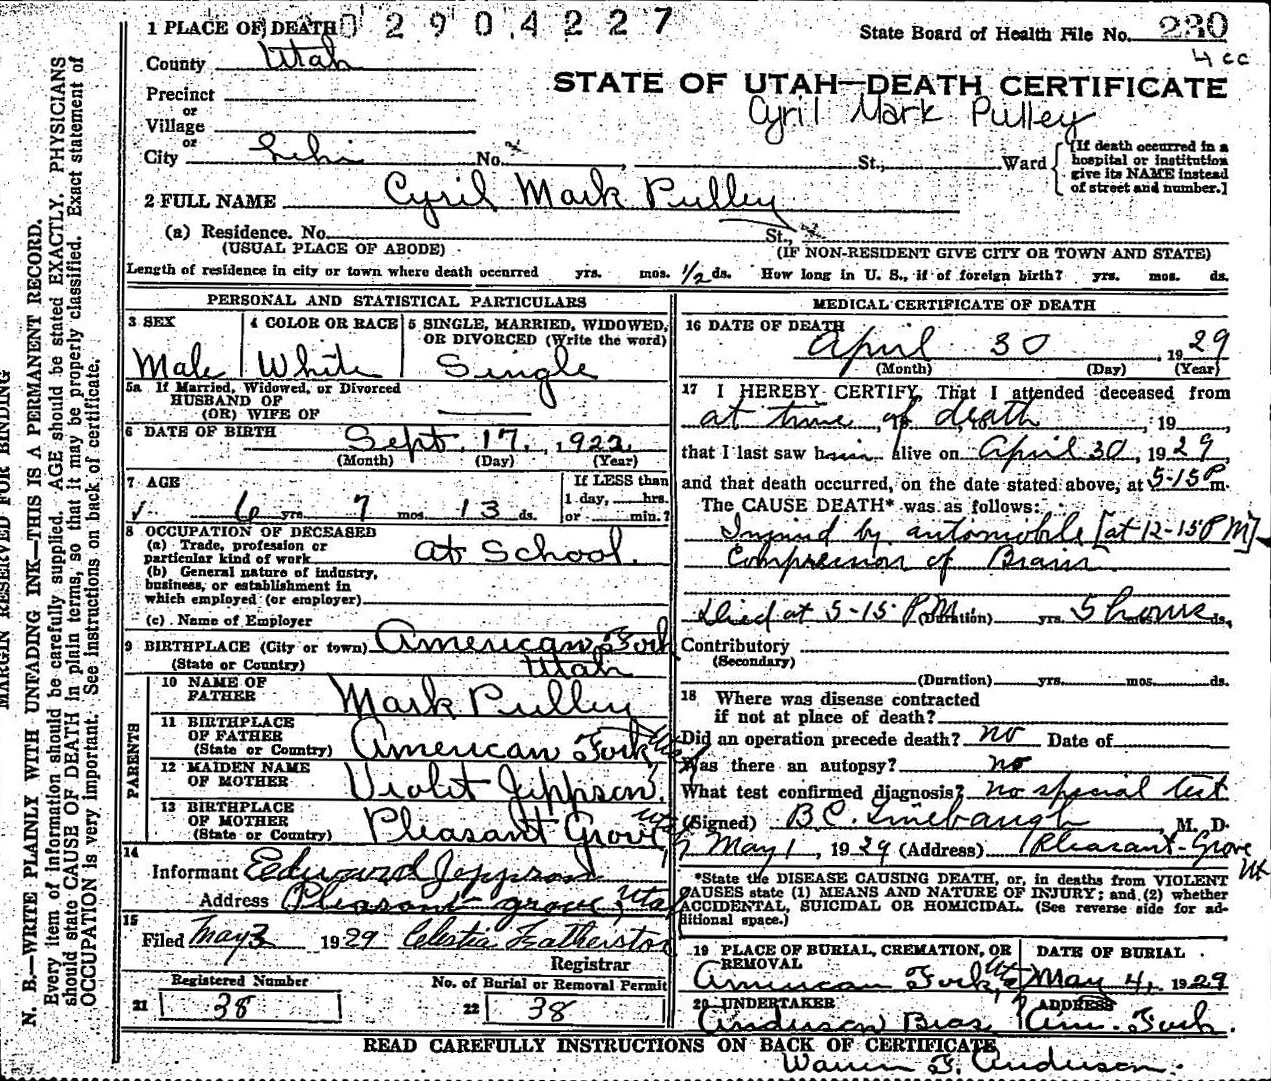 0 2 9 0 4 2 2 7
1 PLACE OF DEATH
State Board of Health File No. 230
4 cc
County Utah
STATE OF UTAH—DEATH CERTIFICATE
Cyril Mark Pulley
Precinct
or
Village
or
City Lehi No. , St., Ward
[If death occurred in a
hospital or institution
give its NAME instead
of street and number.]
2 FULL NAME Cyril Mark Pulley
(a) Residence. No. St.,
(USUAL PLACE OF ABODE) (IF NON-RESIDENT GIVE CITY OR TOWN AND STATE)
Length of residence in city or town where death occurred yrs. mos. 1/2 ds. How long in U. S., if of foreign birth? yrs. mos. ds.
PERSONAL AND STATISTICAL PARTICULARS
3 SEX
Male
4 COLOR OR RACE
White
5 SINGLE, MARRIED, WIDOWED,
OR DIVORCED (Write the word)
Single
5a If Married, Widowed, or Divorced
HUSBAND OF
(OR) WIFE OF
6 DATE OF BIRTH Sept. 17, 1922
(Month) (Day) (Year)
7 AGE
6 yrs. 7 mos. 13 ds.
If LESS than
1 day, hrs.
or min.?
8 OCCUPATION OF DECEASED
(a) Trade, profession or
particular kind of work at School.
(b) General nature of industry,
business, or establishment in
which employed (or employer)
(c) Name of Employer
9 BIRTHPLACE (City or town) American Fork
(State or Country) Utah
PARENTS
10 NAME OF
FATHER Mark Pulley
11 BIRTHPLACE
OF FATHER
(State or Country) American Fork Uta
12 MAIDEN NAME
OF MOTHER Violet Jeppson.
13 BIRTHPLACE
OF MOTHER
(State or Country) Pleasant Grove Uta
14
Informant Edward Jeppson
Address Pleasant grove, Uta
15
Filed May 3 1929 Celestia Featherston
Registrar
Registered Number
21 38
No. of Burial or Removal Permit
22 38
MEDICAL CERTIFICATE OF DEATH
16 DATE OF DEATH
April 30, 1929
(Month) (Day) (Year)
17 I HEREBY CERTIFY, That I attended deceased from
at time of death, 19
that I last saw him alive on April 30, 1929,
and that death occurred, on the date stated above, at 5-15 P m.
The CAUSE DEATH* was as follows:
Injured by automobile [at 12-15 P M]
Compression of Brain
Died at 5-15 P.M. (Duration) yrs. 5 hours ds.
Contributory
(Secondary)
(Duration) yrs. mos. ds.
18 Where was disease contracted
if not at place of death?
Did an operation precede death? no Date of
Was there an autopsy? no
What test confirmed diagnosis? no special test
(Signed) B.C. Linebaugh, M. D.
May 1, 1929 (Address) Pleasant-Grove
Ut
*State the DISEASE CAUSING DEATH, or, in deaths from VIOLENT
CAUSES state (1) MEANS AND NATURE OF INJURY; and (2) whether
ACCIDENTAL, SUICIDAL OR HOMICIDAL. (See reverse side for ad-
ditional space.)
19 PLACE OF BURIAL, CREMATION, OR
REMOVAL
American Fork, Uta
DATE OF BURIAL
May 4, 1929
20 UNDERTAKER
Anderson Bros
ADDRESS
Am. Fork.
READ CAREFULLY INSTRUCTIONS ON BACK OF CERTIFICATE
Warren F. Anderson.
MARGIN RESERVED FOR BINDING
N. B.—WRITE PLAINLY WITH UNFADING INK—THIS IS A PERMANENT RECORD.
Every item of information should be carefully supplied. AGE should be stated EXACTLY. PHYSICIANS
should state CAUSE OF DEATH in plain terms, so that it may be properly classified. Exact statement of
OCCUPATION is very important. See instructions on back of certificate.